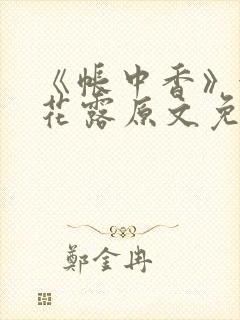 《帐中香》
花露原文免
鄭金冉